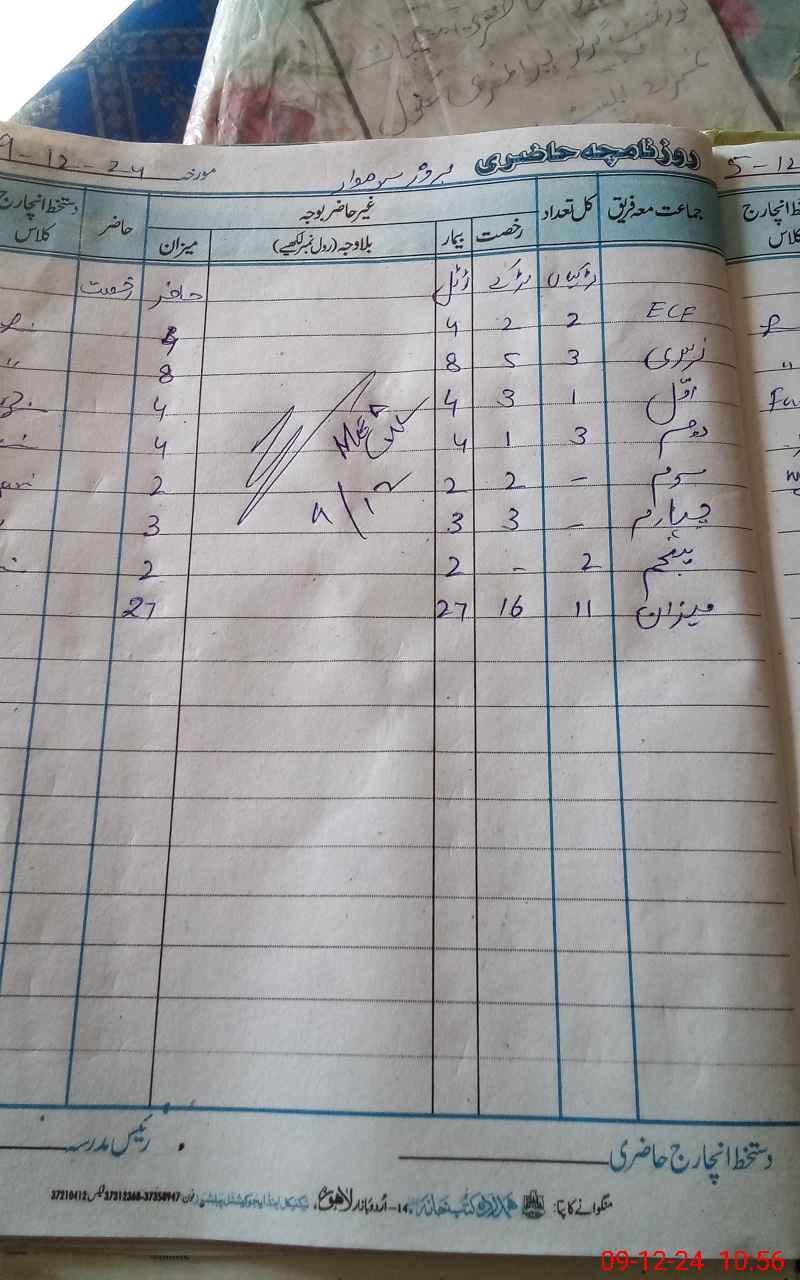 گورنمنٹ گرلز پرائمری سکول
روزنامچہ حاضری بروز سوموار مورخہ 9-12-24
جماعت معہ فریق کل تعداد غیر حاضر بوجہ حاضر دستخط انچارج کلاس
رخصت بیمار بلاوجہ (رول نمبر لکھیے) میزان
لڑکیاں لڑکے ٹوٹل حاضر رخصت
ECE 2 2 4 4
نرسری 3 5 8 8
اوّل 1 3 4 4
دوم 3 1 4 4
سوم - 2 2 2
چہارم - 3 3 3
پنجم 2 - 2 2
میزان 11 16 27 27
5-12
دستخط انچارج حاضری
رئیس مدرسہ
منگوانے کا پتا: ہمدرد کتب خانہ 14-اُردو بازار لاہور
37210412 37312368-37358947
09-12-24 10:56